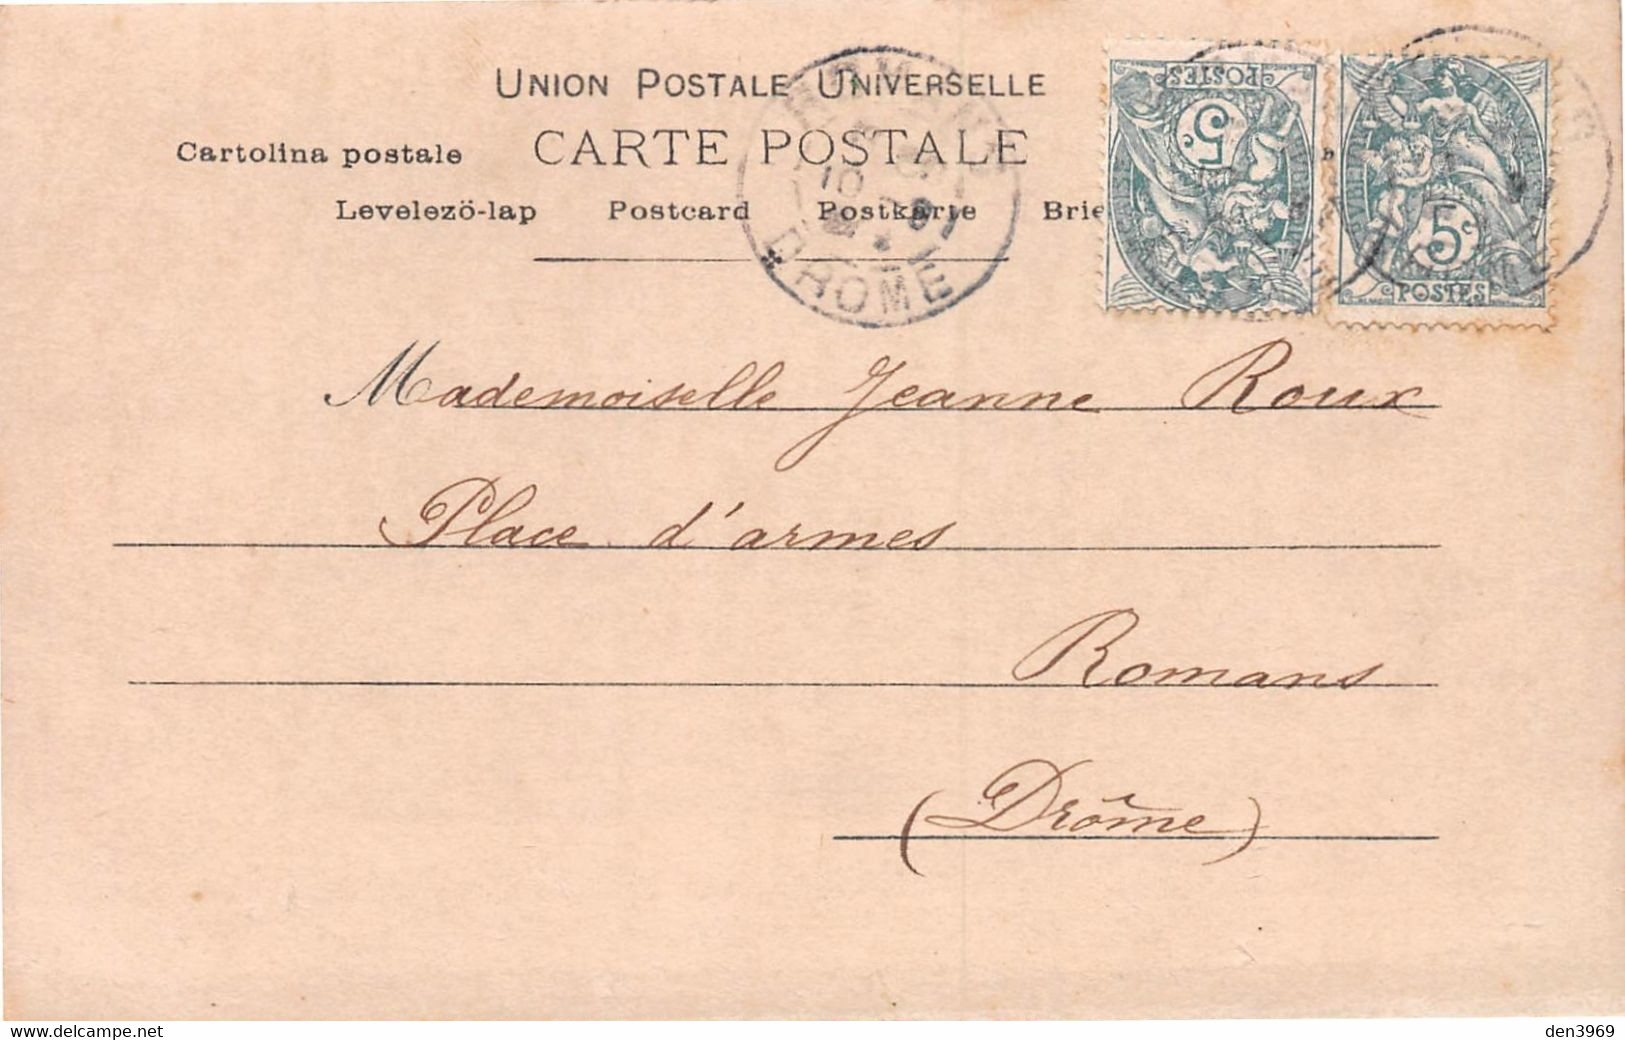 UNION POSTALE UNIVERSELLE
Cartolina postale CARTE POSTALE
Levelezö-lap Postcard Postkarte Brie
ROMANS
10
DRÔME
POSTES
5c
5c
POSTES
Mademoiselle Jeanne Roux
Place d'armes
Romans
(Drôme)
delcampe.net
den3969